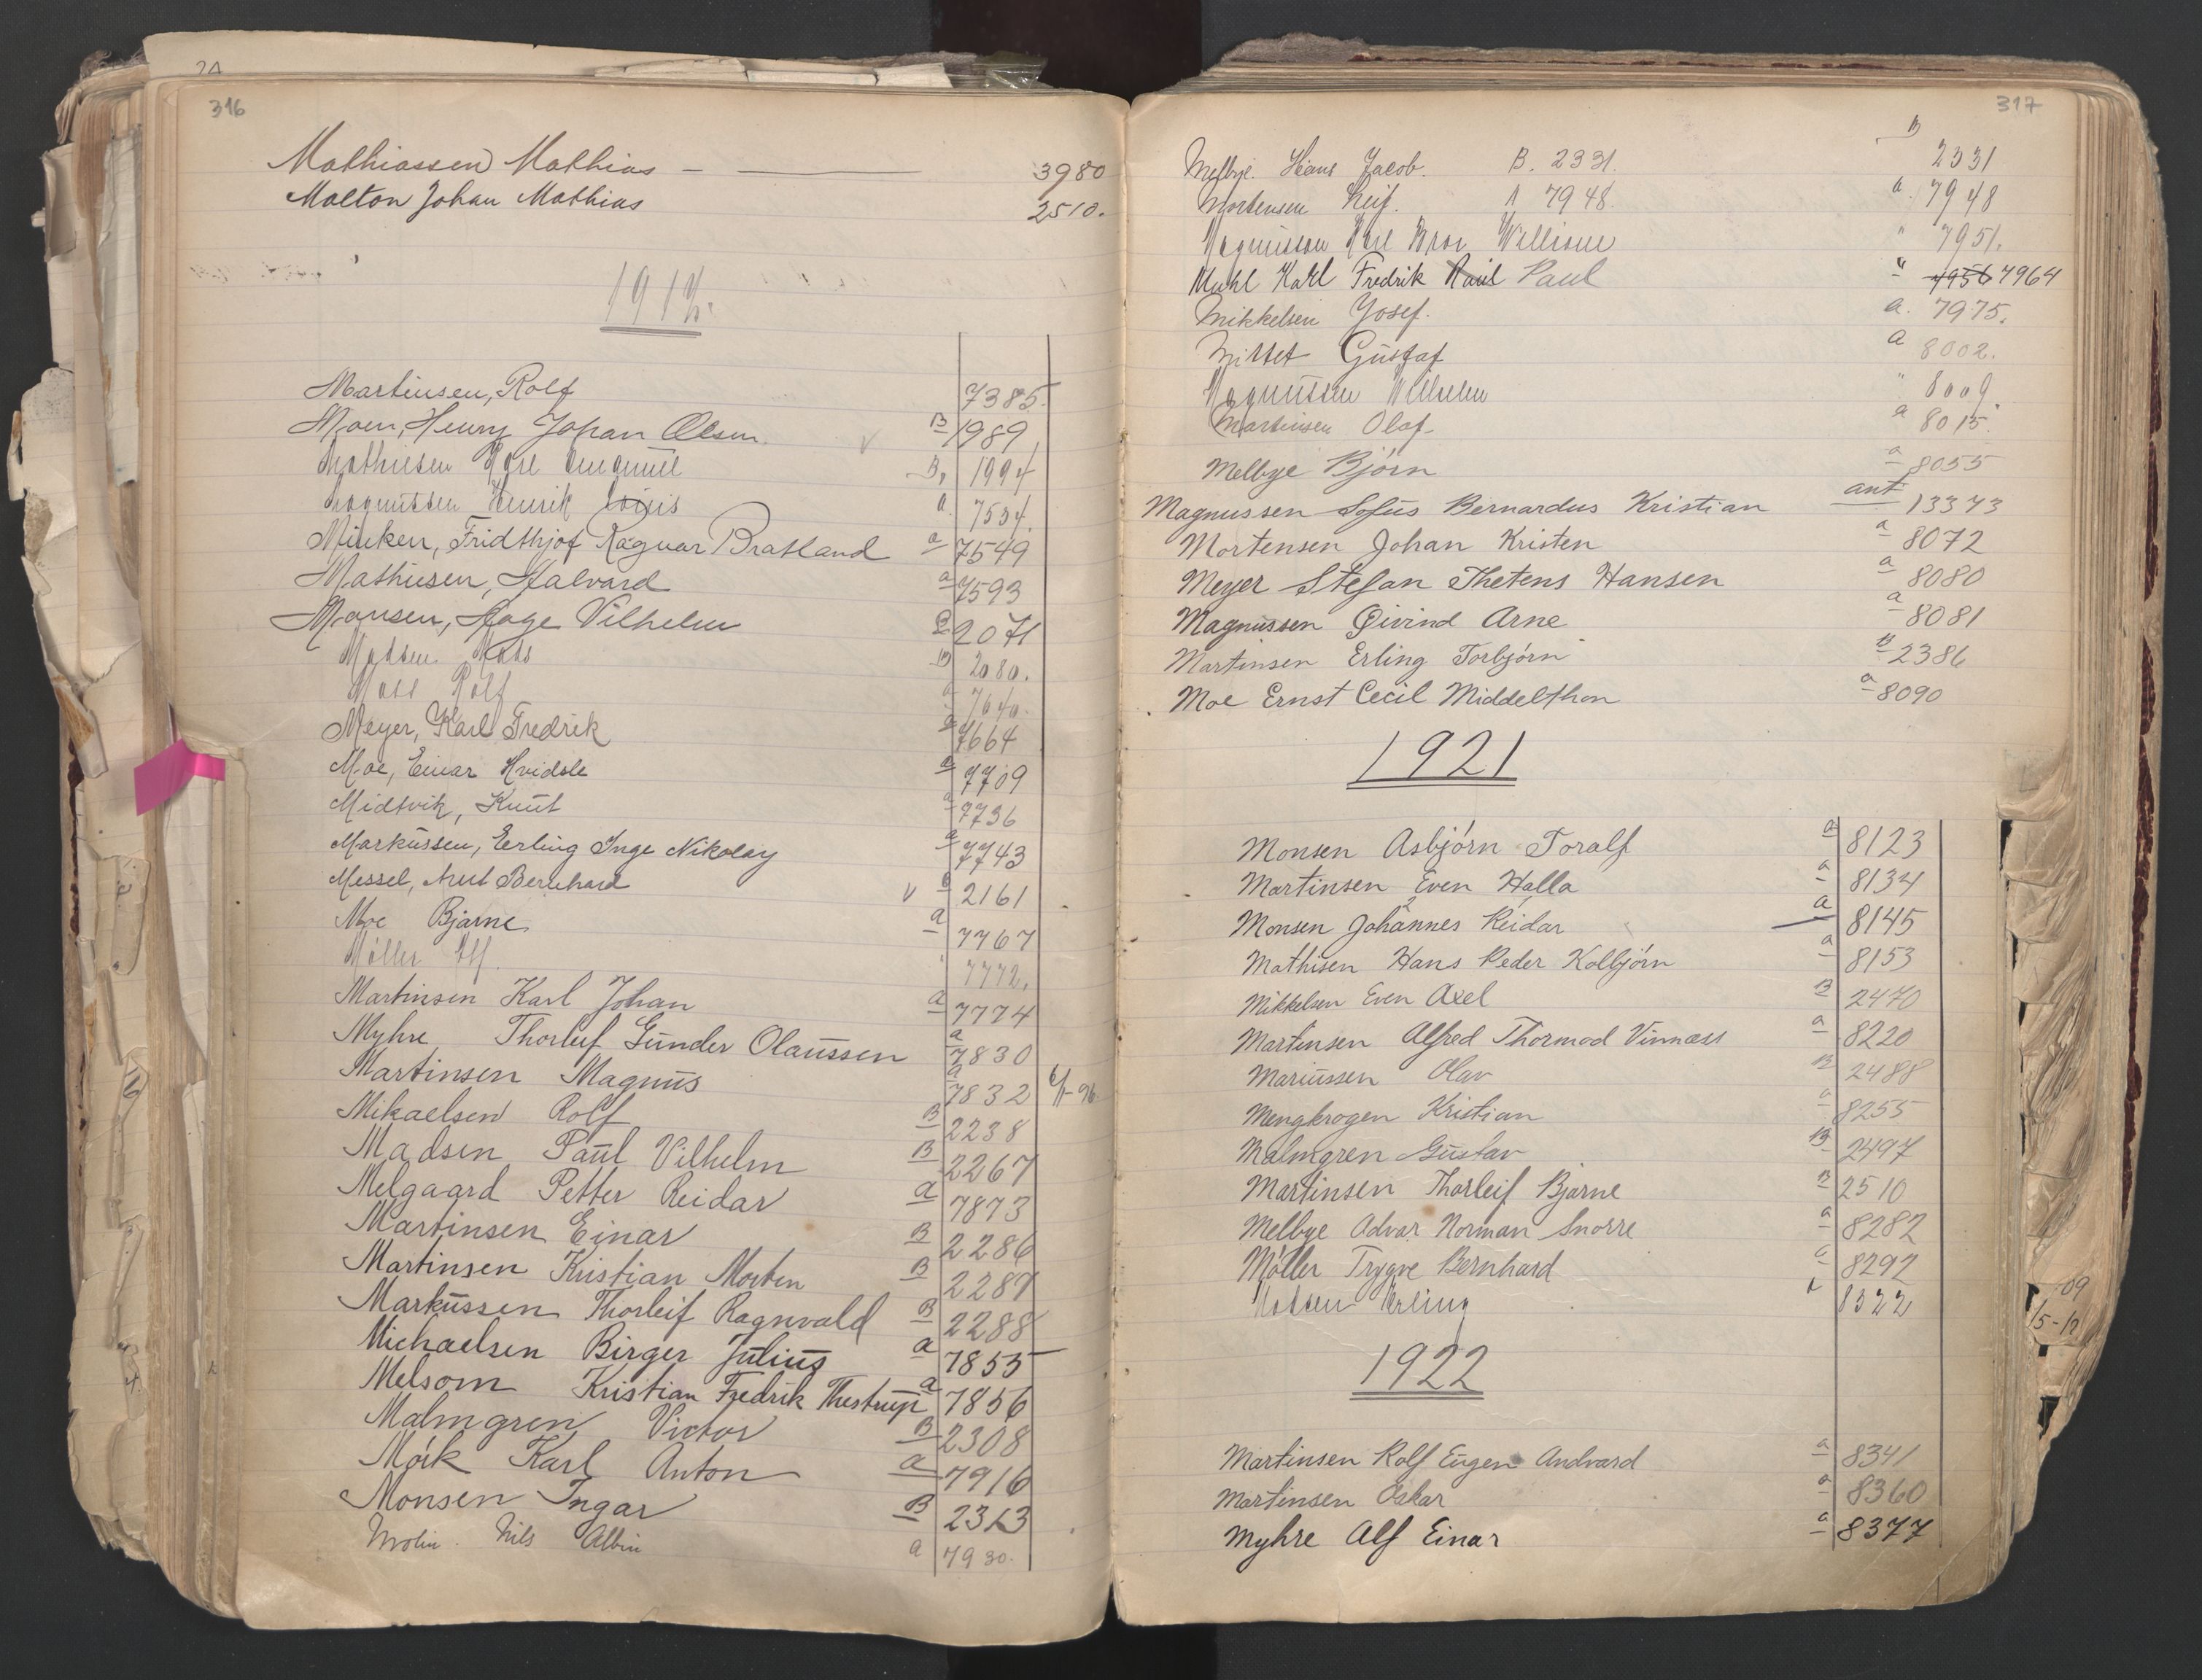 24
316
Mathiassen Mathias — 3980
Malton Johan Mathias 2510.
Martinsen, Rolf 7385.
Moen, Henry Johan Olsen. v B 1989
Mathiesen Karl B. 1994
Magnussen Henrik Louis a. 7534.
Minken, Fridthjof Ragnar Bratland a 7549
Mathiesen, Halvard a 7593
Monsen, Hage Vilhelm B 2071
Madsen Mads B 2080.
Moss Rolf a 7640.
Meyer, Karl Fredrik a 7664
Moe, Einar Hvidste a 7709
Midtvik, Knut a 7736
Markussen, Erling Inge Nikolay a 7743
Messel, Arut Bernhard v B 2161
Moe Bjarne a 7767
Møller Alf. " 7772.
Martinsen Karl Johan a 7774
Myhre Thorleif Gunder Olaussen a 7830
Martinsen Magnus a 7832
Mikaelsen Rolf B 2238
Madsen Paul Vilhelm B 2267
Melgaard Petter Reidar a 7873
Martinsen Einar B 2286
Martinsen Kristian Morten B 2287
Markussen Thorleif Ragnvald B 2288
Michaelsen Birger Julius a 7855
Melsom Kristian Fredrik Thestrup a 7856
Malmgren Victor B 2308
Mørk Karl Anton a 7916
Monsen Ingar B 2313
Molin. Nils Albin a 7930.
317
Melbye. Hans Jacob. B. 2331. B 2331
Mortensen Leif. A 7948. a. 7948
Magnussen Karl William " 7951.
Muhl Karl Fredrik Raul Paul " 7956 7964
Mikkelsen Josef. a. 7975.
Mittet Gustaf a 8002.
Magnussen Wilhelm " 8009.
Martinsen Olaf a 8015.
Melbye Bjørn a 8055
Magnussen Sofus Bernardus Kristian ant 13373
Mortensen Johan Kristen a 8072
Meyer Stefan Thetens Hansen a 8080
Magnussen Øivind Arne a 8081
Martinsen Erling Torbjørn B 2386
Moe Ernst Cecil Middelthon a 8090
1921
Monsen Asbjørn Toralf a 8123
Martinsen Even Halla a 8134
Monsen Johannes Reidar a 8145
Mathisen Hans Peder Kolbjørn a 8153
Mikkelsen Even Axel B 2470
Martinsen Alfred Thormod Vinnæss a 8220
Mariussen Olav B 2488
Mengkrogen Kristian a 8255
Malmgren Gustav B 2497
Martinsen Thorleif Bjarne B 2510
Melbye Advar Norman Snorre a 8282
Møller Trygve Bernhard a 8292
Madsen Erling 8322
1922
Martinsen Rolf Eugen Andvard a 8341
Martinsen Oskar a 8360
Myhre Alf Einar a 8377